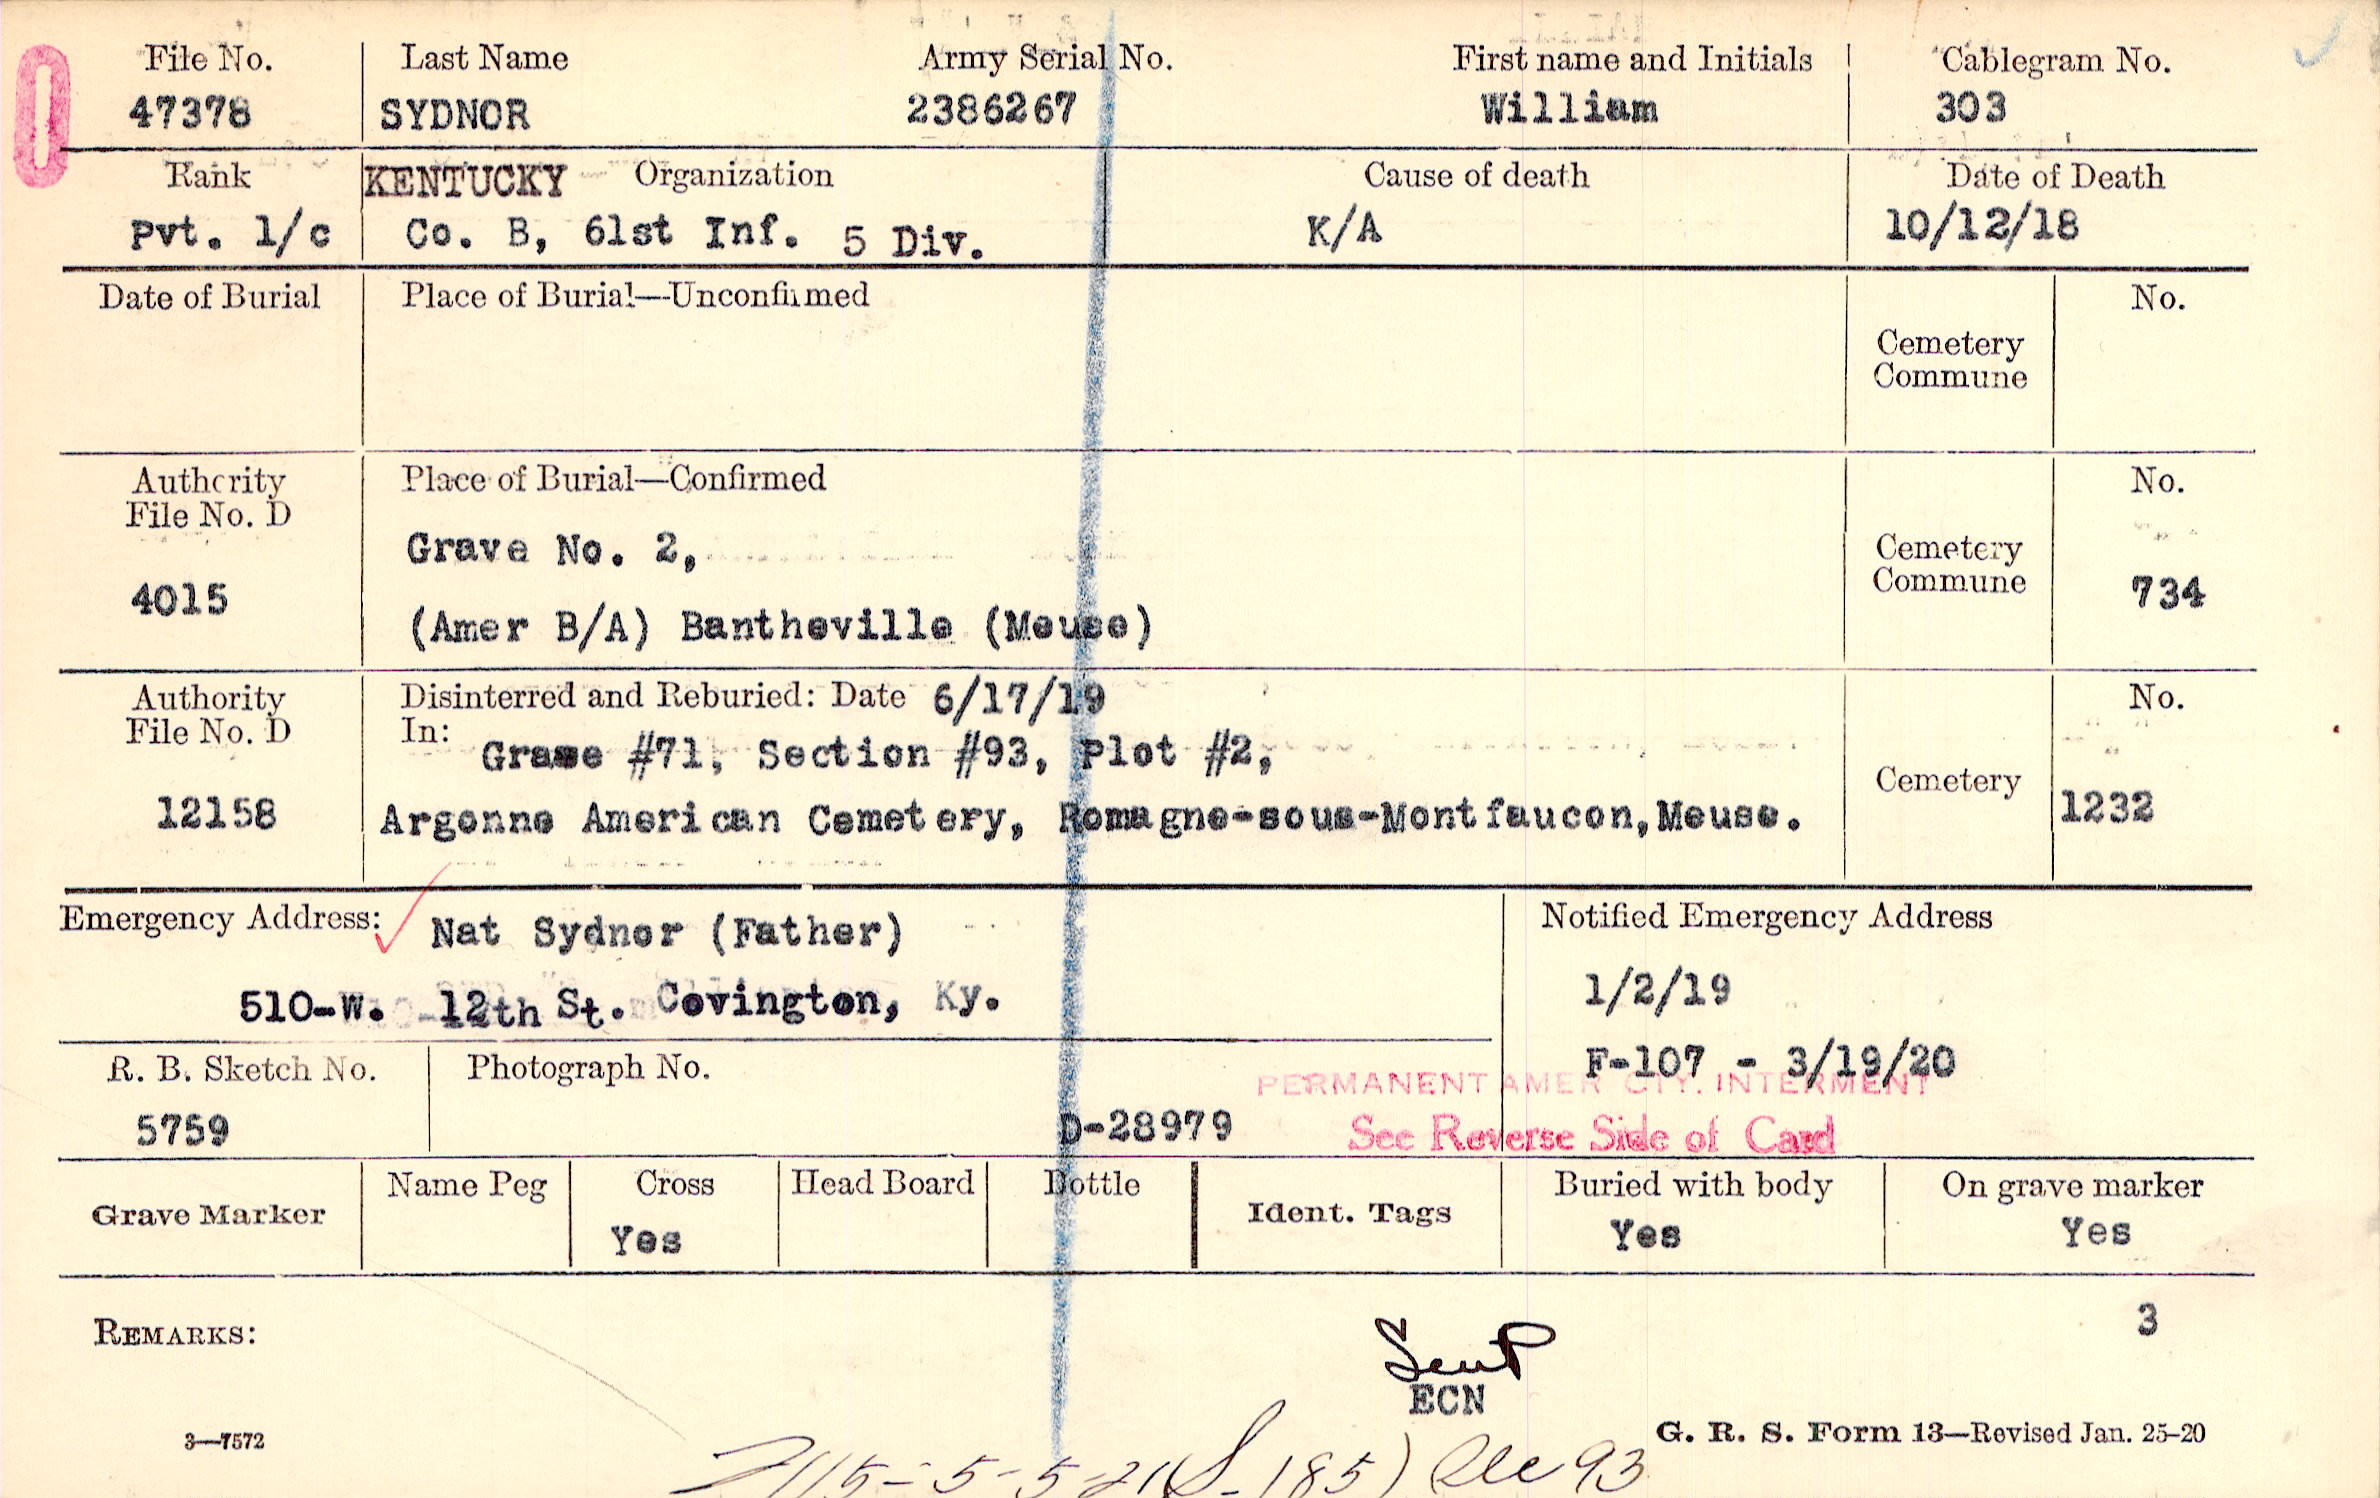 File No. Last Name Army Serial No. First name and Initials Cablegram No.
47378 SYDNOR 2386267 William 303
Rank KENTUCKY Organization Cause of death Date of Death
Pvt. 1/c Co. B, 61st Inf. 5 Div. K/A 10/12/18
Date of Burial Place of Burial—Unconfirmed No.
Cemetery
Commune
Authority Place of Burial—Confirmed No.
File No. D
Grave No. 2, Cemetery
Commune 734
4015 (Amer B/A) Bantheville (Meuse)
Authority Disinterred and Reburied: Date 6/17/19 No.
File No. D In:
Grave #71, Section #93, Plot #2,
Cemetery
12158 Argonne American Cemetery, Romagne-sous-Montfaucon, Meuse. 1232
Emergency Address: Nat Sydnor (Father) Notified Emergency Address
510-W. 12th St. Covington, Ky. 1/2/19
R. B. Sketch No. Photograph No. F-107 - 3/19/20
PERMANENT AMER CTY. INTERMENT
5759 D-28979 See Reverse Side of Card
Grave Marker Name Peg Cross Head Board Bottle Ident. Tags Buried with body On grave marker
Yes Yes Yes
3
REMARKS:
ECN
3—7572 G. R. S. Form 13—Revised Jan. 25-20
93